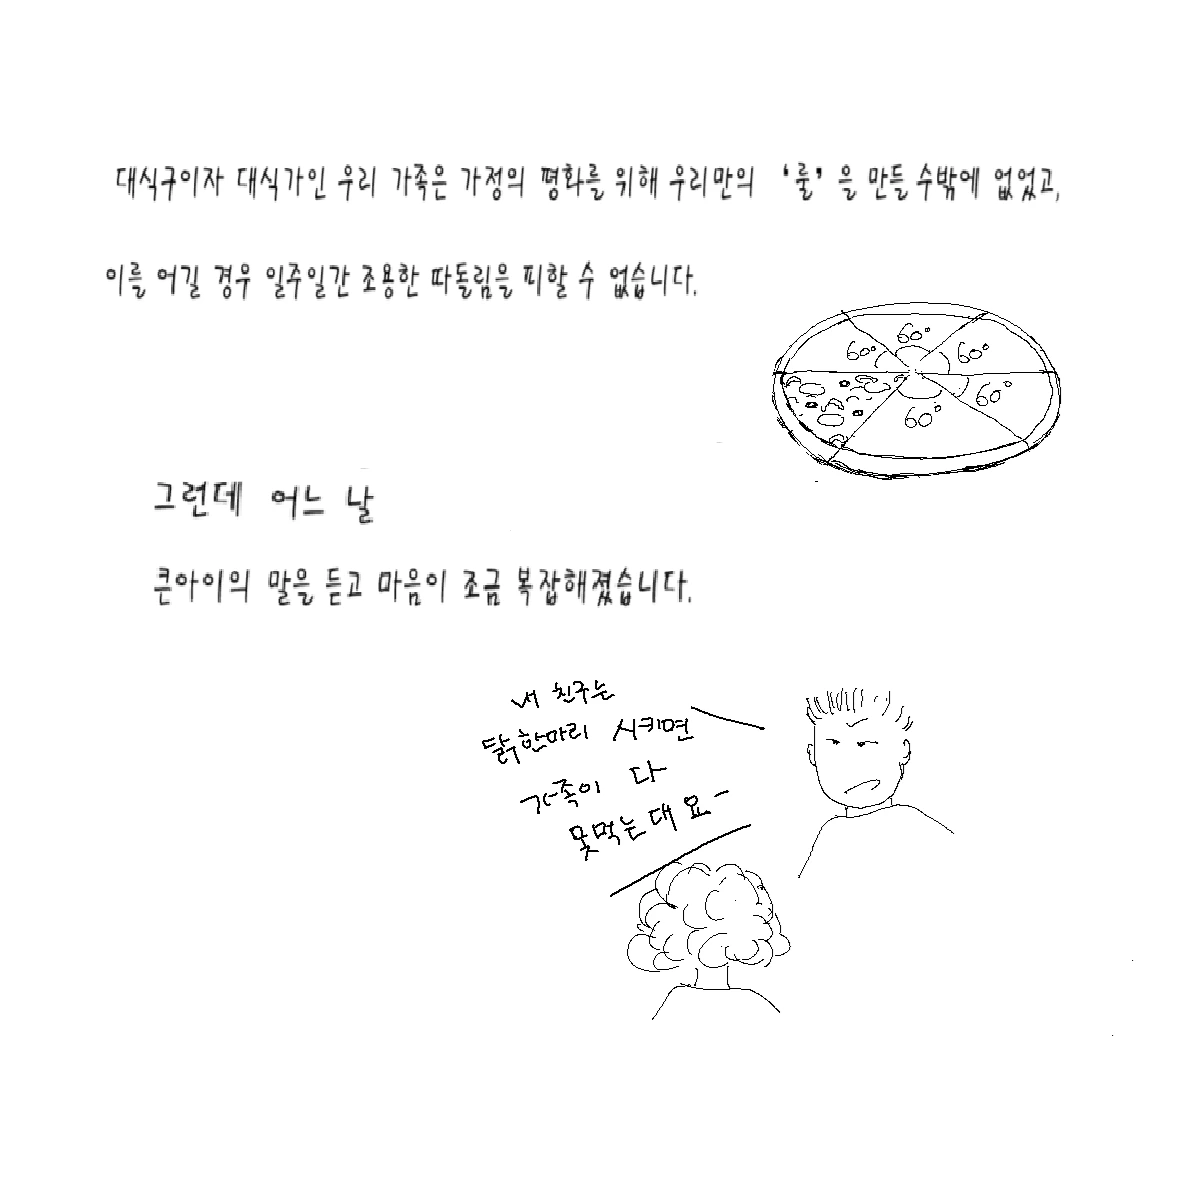 대식구이자 대식가인 우리 가족은 가정의 평화를 위해 우리만의 '룰'을 만들 수밖에 없었고,
이를 어길 경우 일주일간 조용한 따돌림을 피할 수 없습니다.
60°
60°
60°
60°
60°
그런데 어느 날
큰아이의 말을 듣고 마음이 조금 복잡해졌습니다.
내 친구는
닭한마리 시키면
가족이 다
못먹는대요-